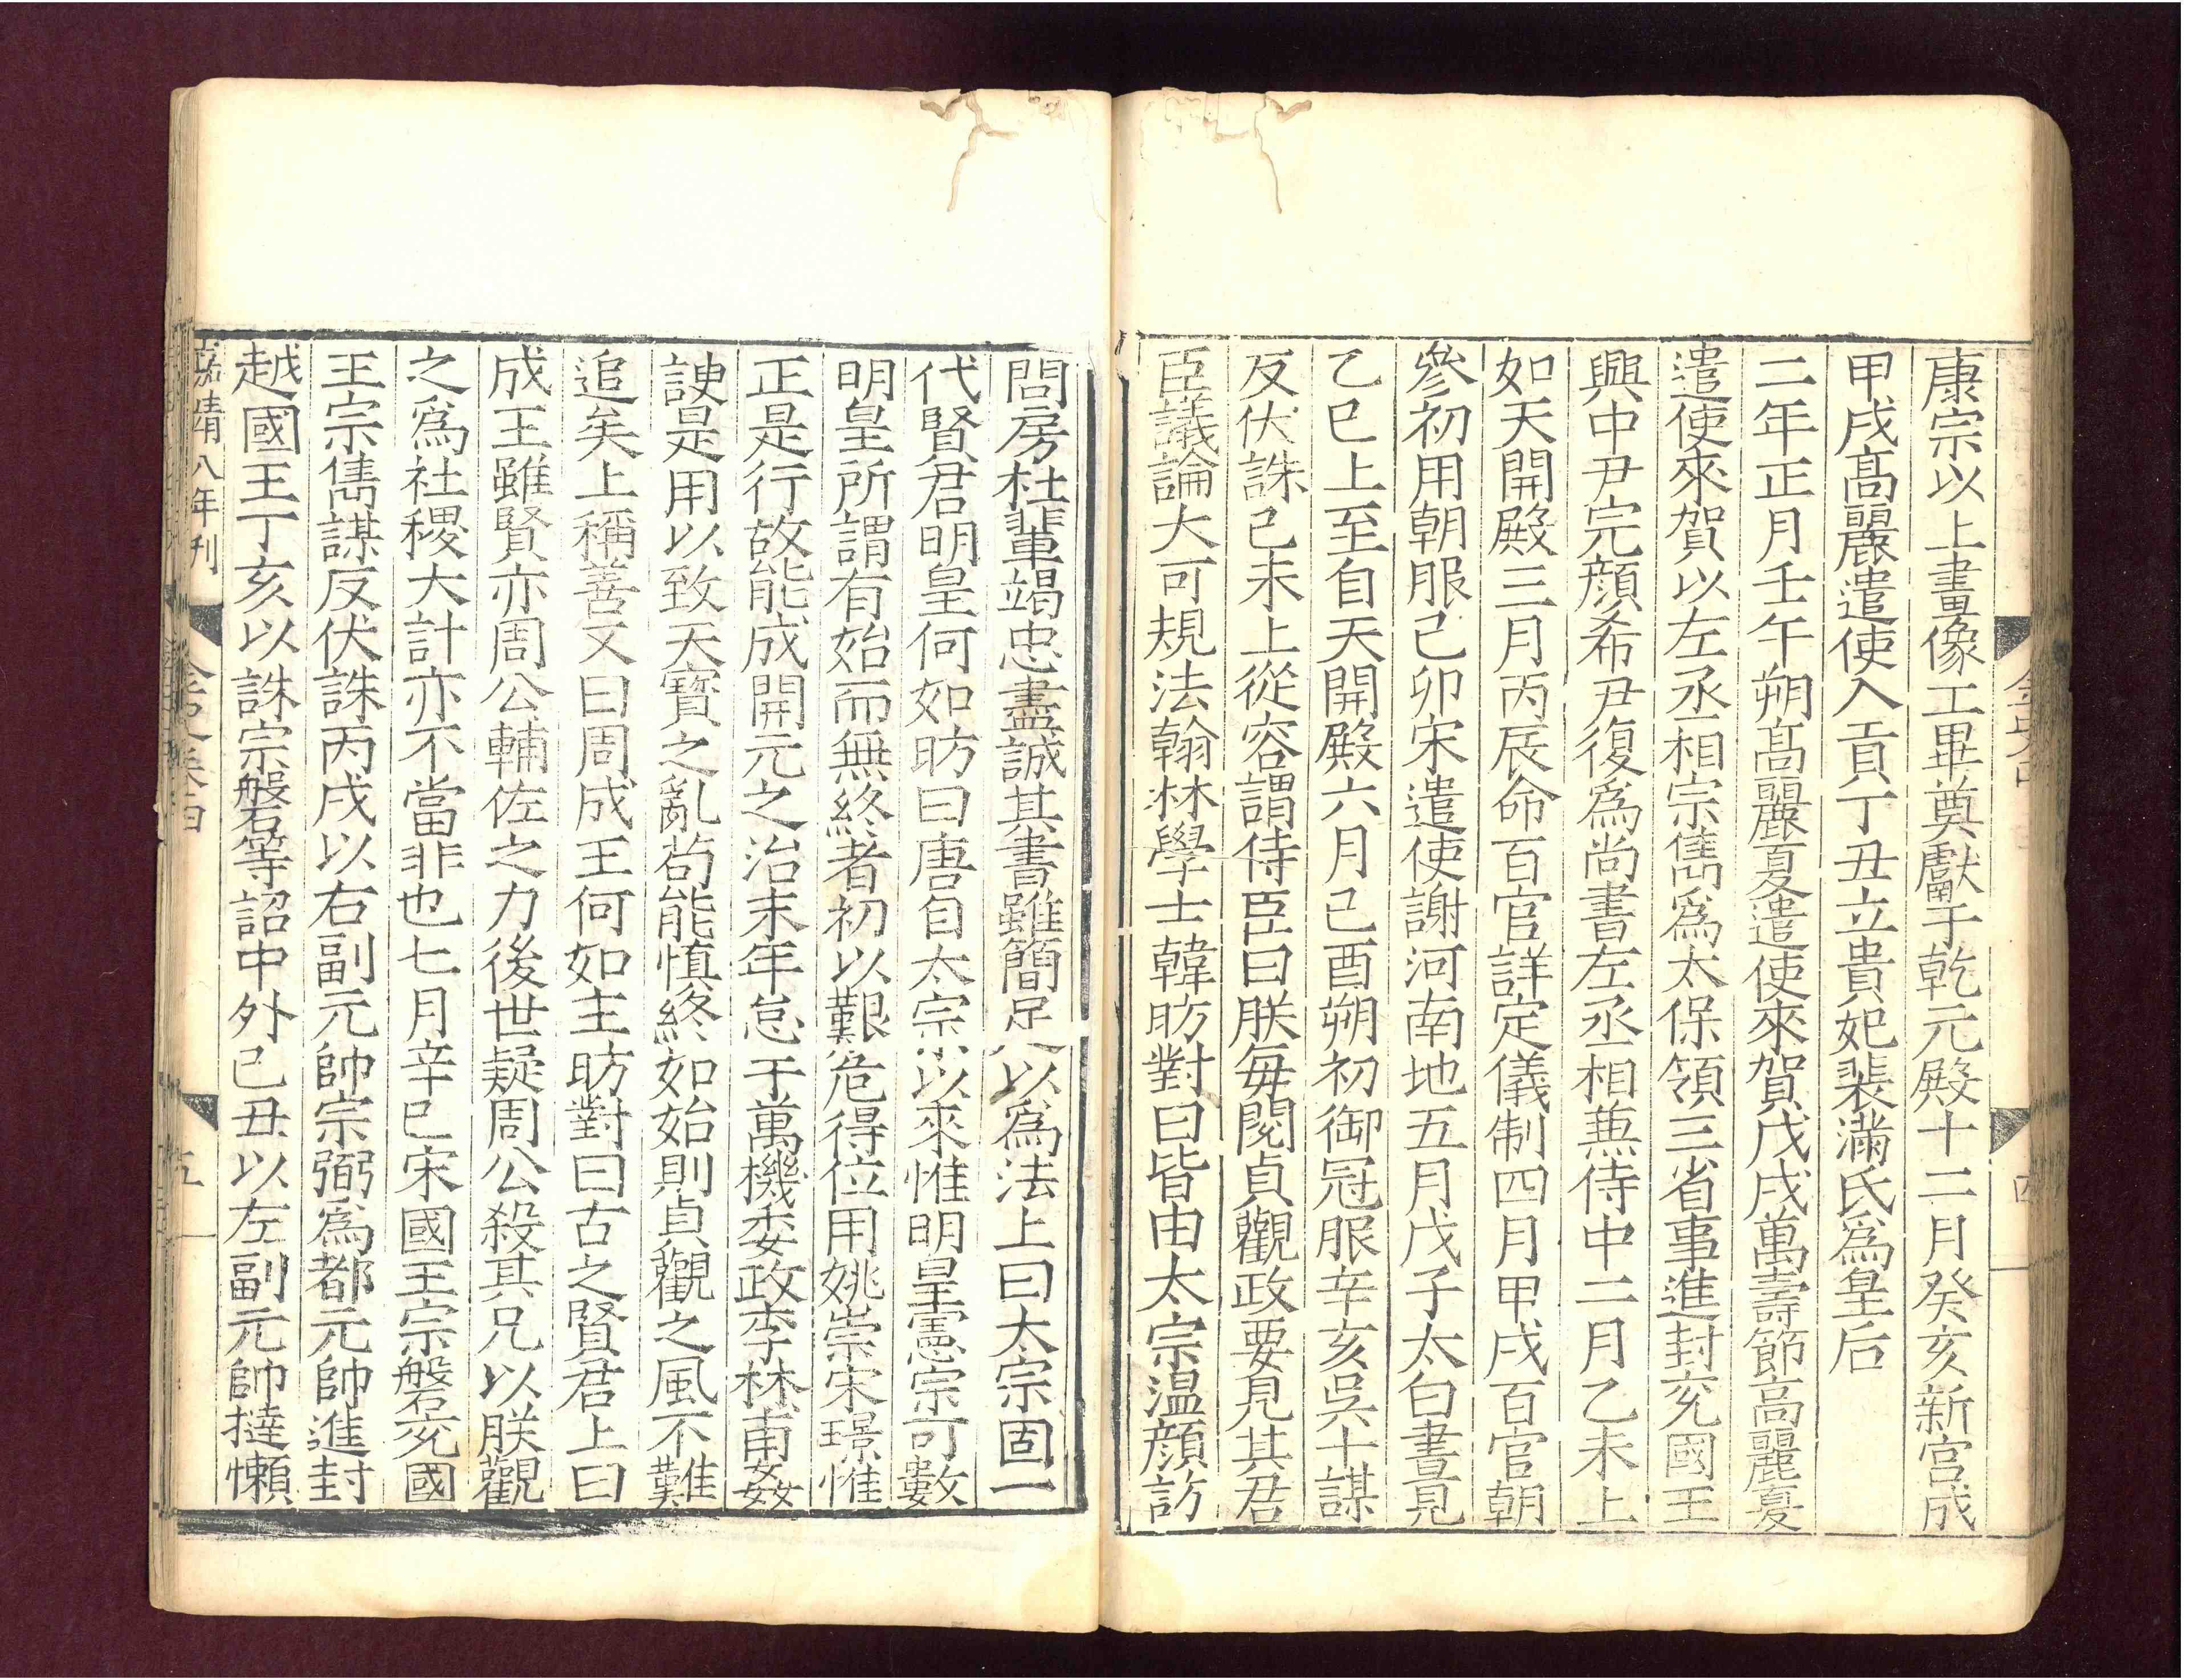 康宗以上畫像工畢奠獻于乾元殿十二月癸亥新宮成
甲戌高麗遣使入貢丁丑立貴妃裴滿氏為皇后
二年正月壬午朔高麗夏遣使來賀戊戌萬壽節高麗夏
遣使來賀以左丞相宗雋為太保領三省事進封兖國王
興中尹完顔希尹復為尚書左丞相兼侍中二月乙未上
如天開殿三月丙辰命百官詳定儀制四月甲戌百官朝
參初用朝服己卯宋遣使謝河南地五月戊子太白晝見
乙巳上至自天開殿六月己酉朔初御冠服辛亥吳十謀
反伏誅己未上從容謂侍臣曰朕每閱貞觀政要見其君
臣議論大可規法翰林學士韓昉對曰皆由太宗温顔訪
問房杜輩竭忠盡誠其書雖簡足以為法上曰太宗固一
代賢君明皇何如昉曰唐自太宗以來惟明皇憲宗可數
明皇所謂有始而無終者初以艱危得位用姚崇宋璟惟
正是行故能成開元之治末年怠于萬機委政李林甫姦
諛是用以致天寶之亂苟能慎終如始則貞觀之風不難
追矣上稱善又曰周成王何如主昉對曰古之賢君上曰
成王雖賢亦周公輔佐之力後世疑周公殺其兄以朕觀
之為社稷大計亦不當非也七月辛巳宋國王宗磐兖國
王宗雋謀反伏誅丙戌以右副元帥宗弼為都元帥進封
越國王丁亥以誅宗磐等詔中外己丑以左副元帥撻懶
嘉靖八年刊 金史卷四 五